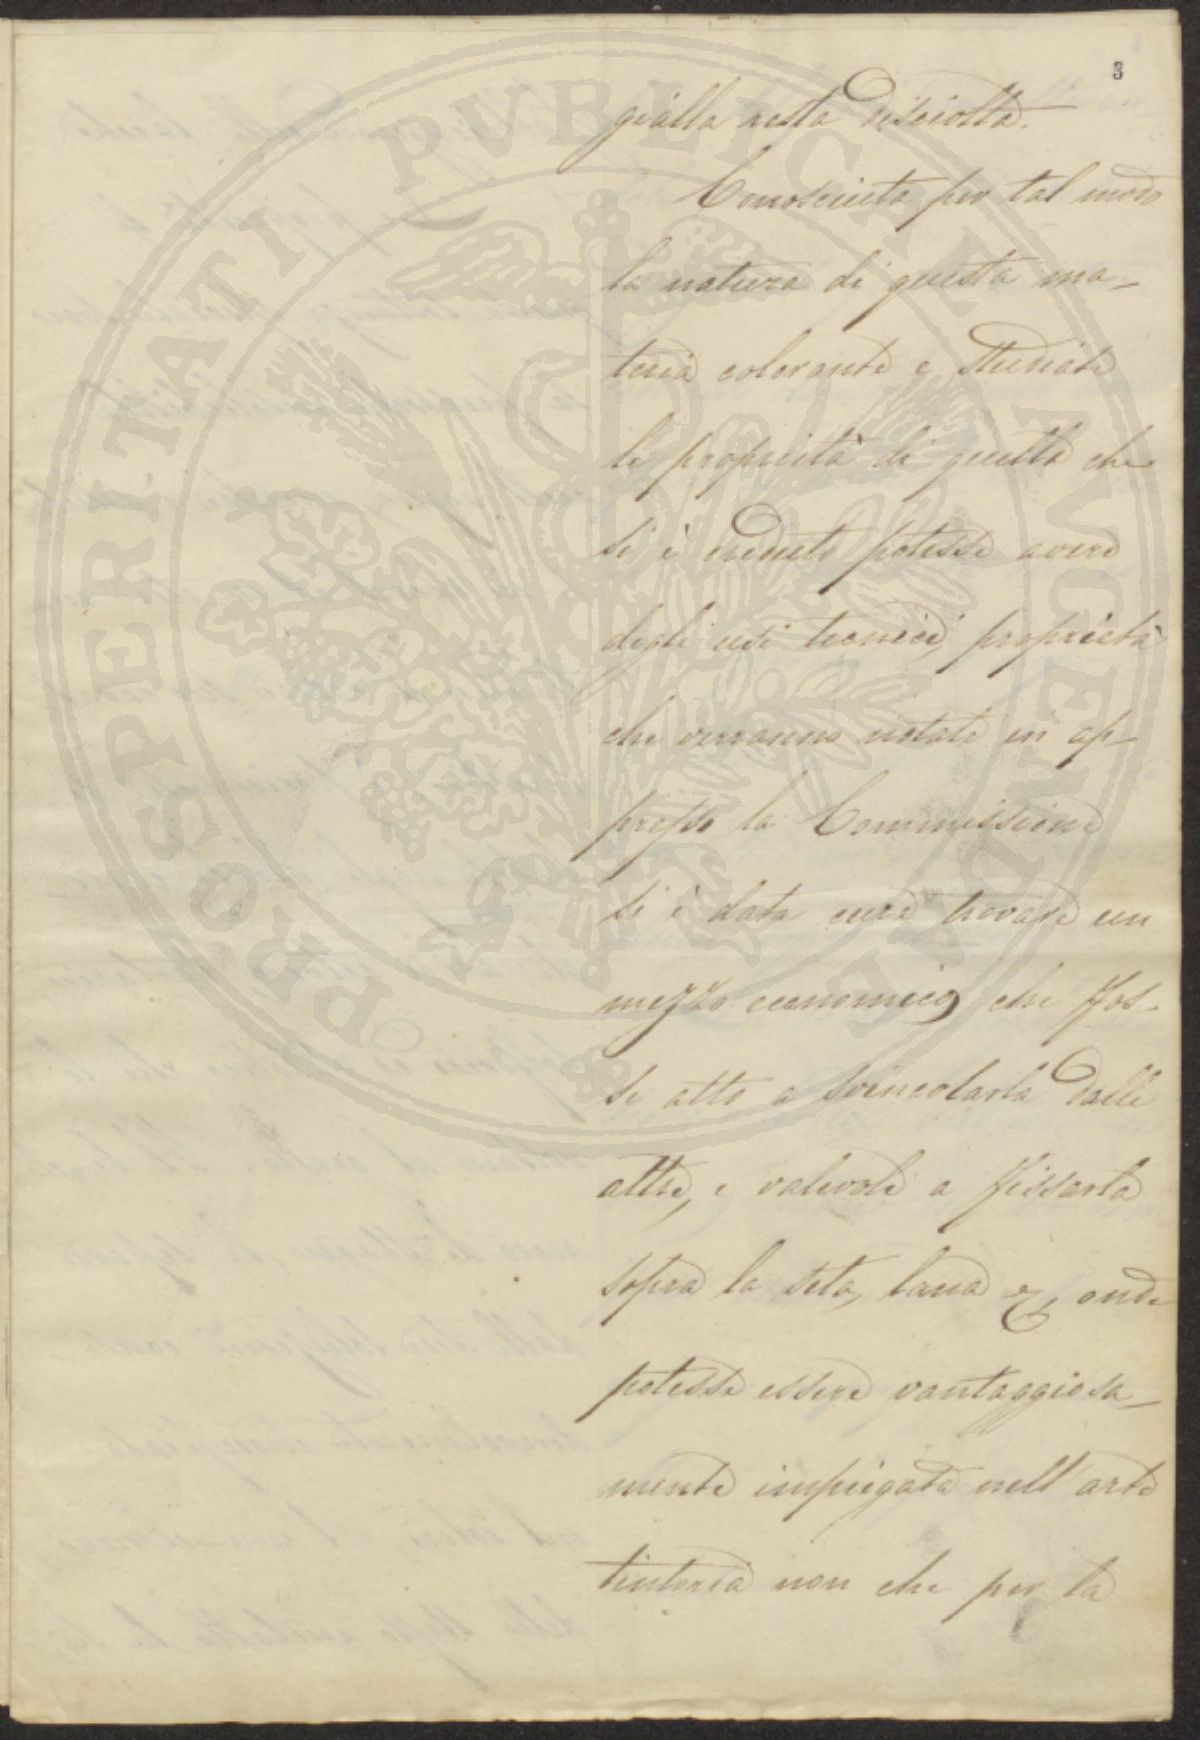 3
gialla resta disciolta.
Conosciuta per tal modo
la natura di questa ma-
teria colorante e studiate
le proprietà di quella che
si è creduto potesse avere
degli usi tecnici, proprietà
che verranno notate in ap-
presso la Commissione
si è data cura trovare un
mezzo economico, che fos-
se atto a svincolarla dalle
altre, e valevole a fissarla
sopra la seta, lana &, onde
potesse essere vantaggiosa-
mente impiegata nell'arte
tintoria non che per la
PROSPERITATI PVBLICAE AVGENDAE